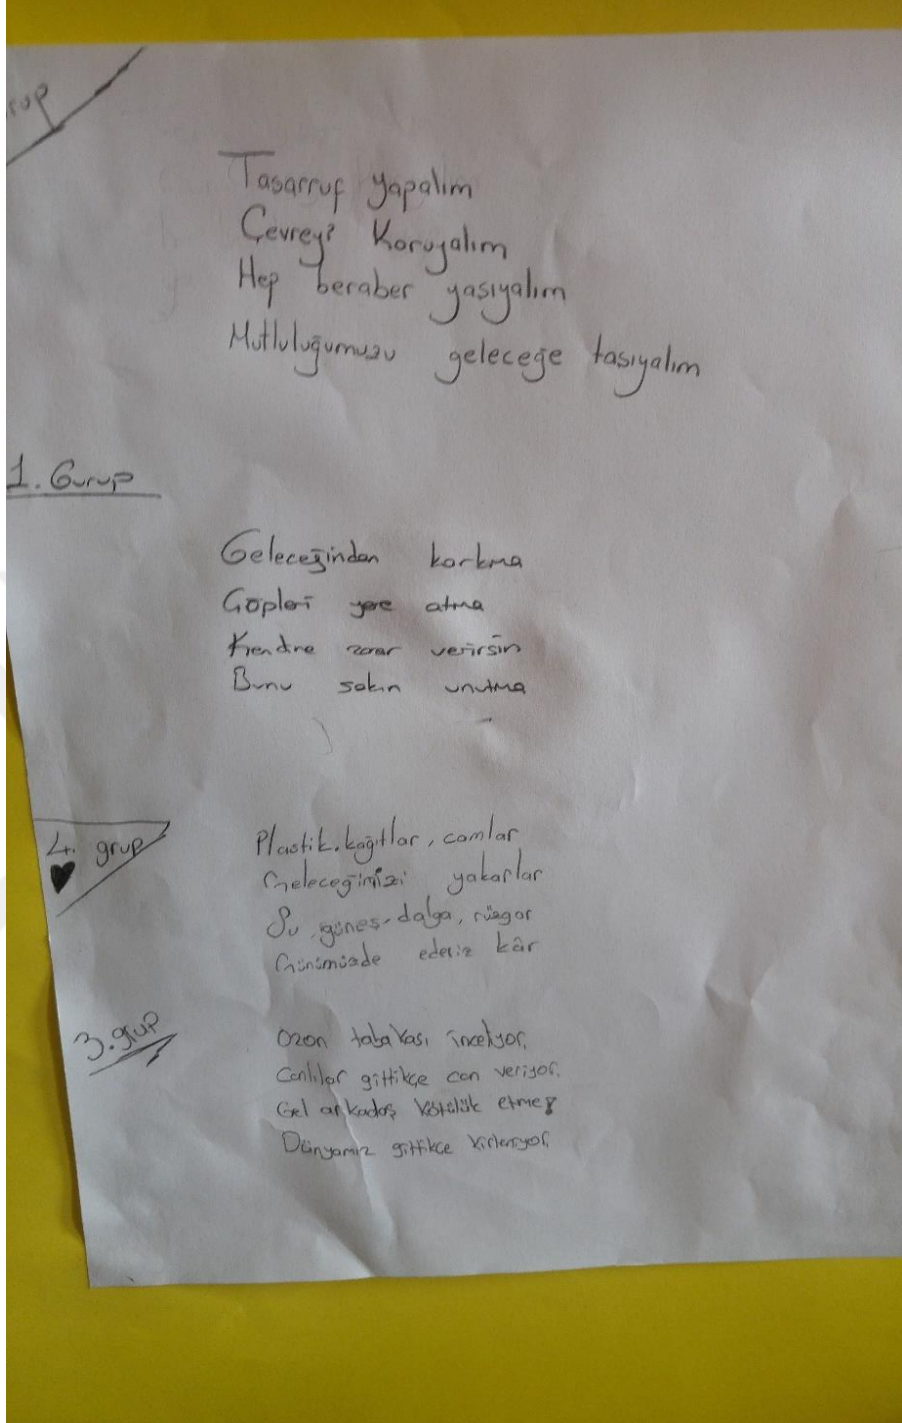 rup
Tasarruf yapalım
Çevreyi Koruyalım
Hep beraber yasıyalım
Mutluluğumuzu geleceğe tasıyalım
1. Gurup
Geleceğinden korkma
Çöpleri yere atma
Kendine zarar verirsin
Bunu sakın unutma
4. grup
Plastik, kağıtlar, camlar
Geleceğimizi yakarlar
Su, güneş, dalga, rüzgar
Günümüzde ederiz kâr
3. grup
Ozon tabakası inceliyor,
Canlılar gittikçe can veriyor.
Gel arkadaş kötülük etme
Dünyamız gittikçe kirleniyor.